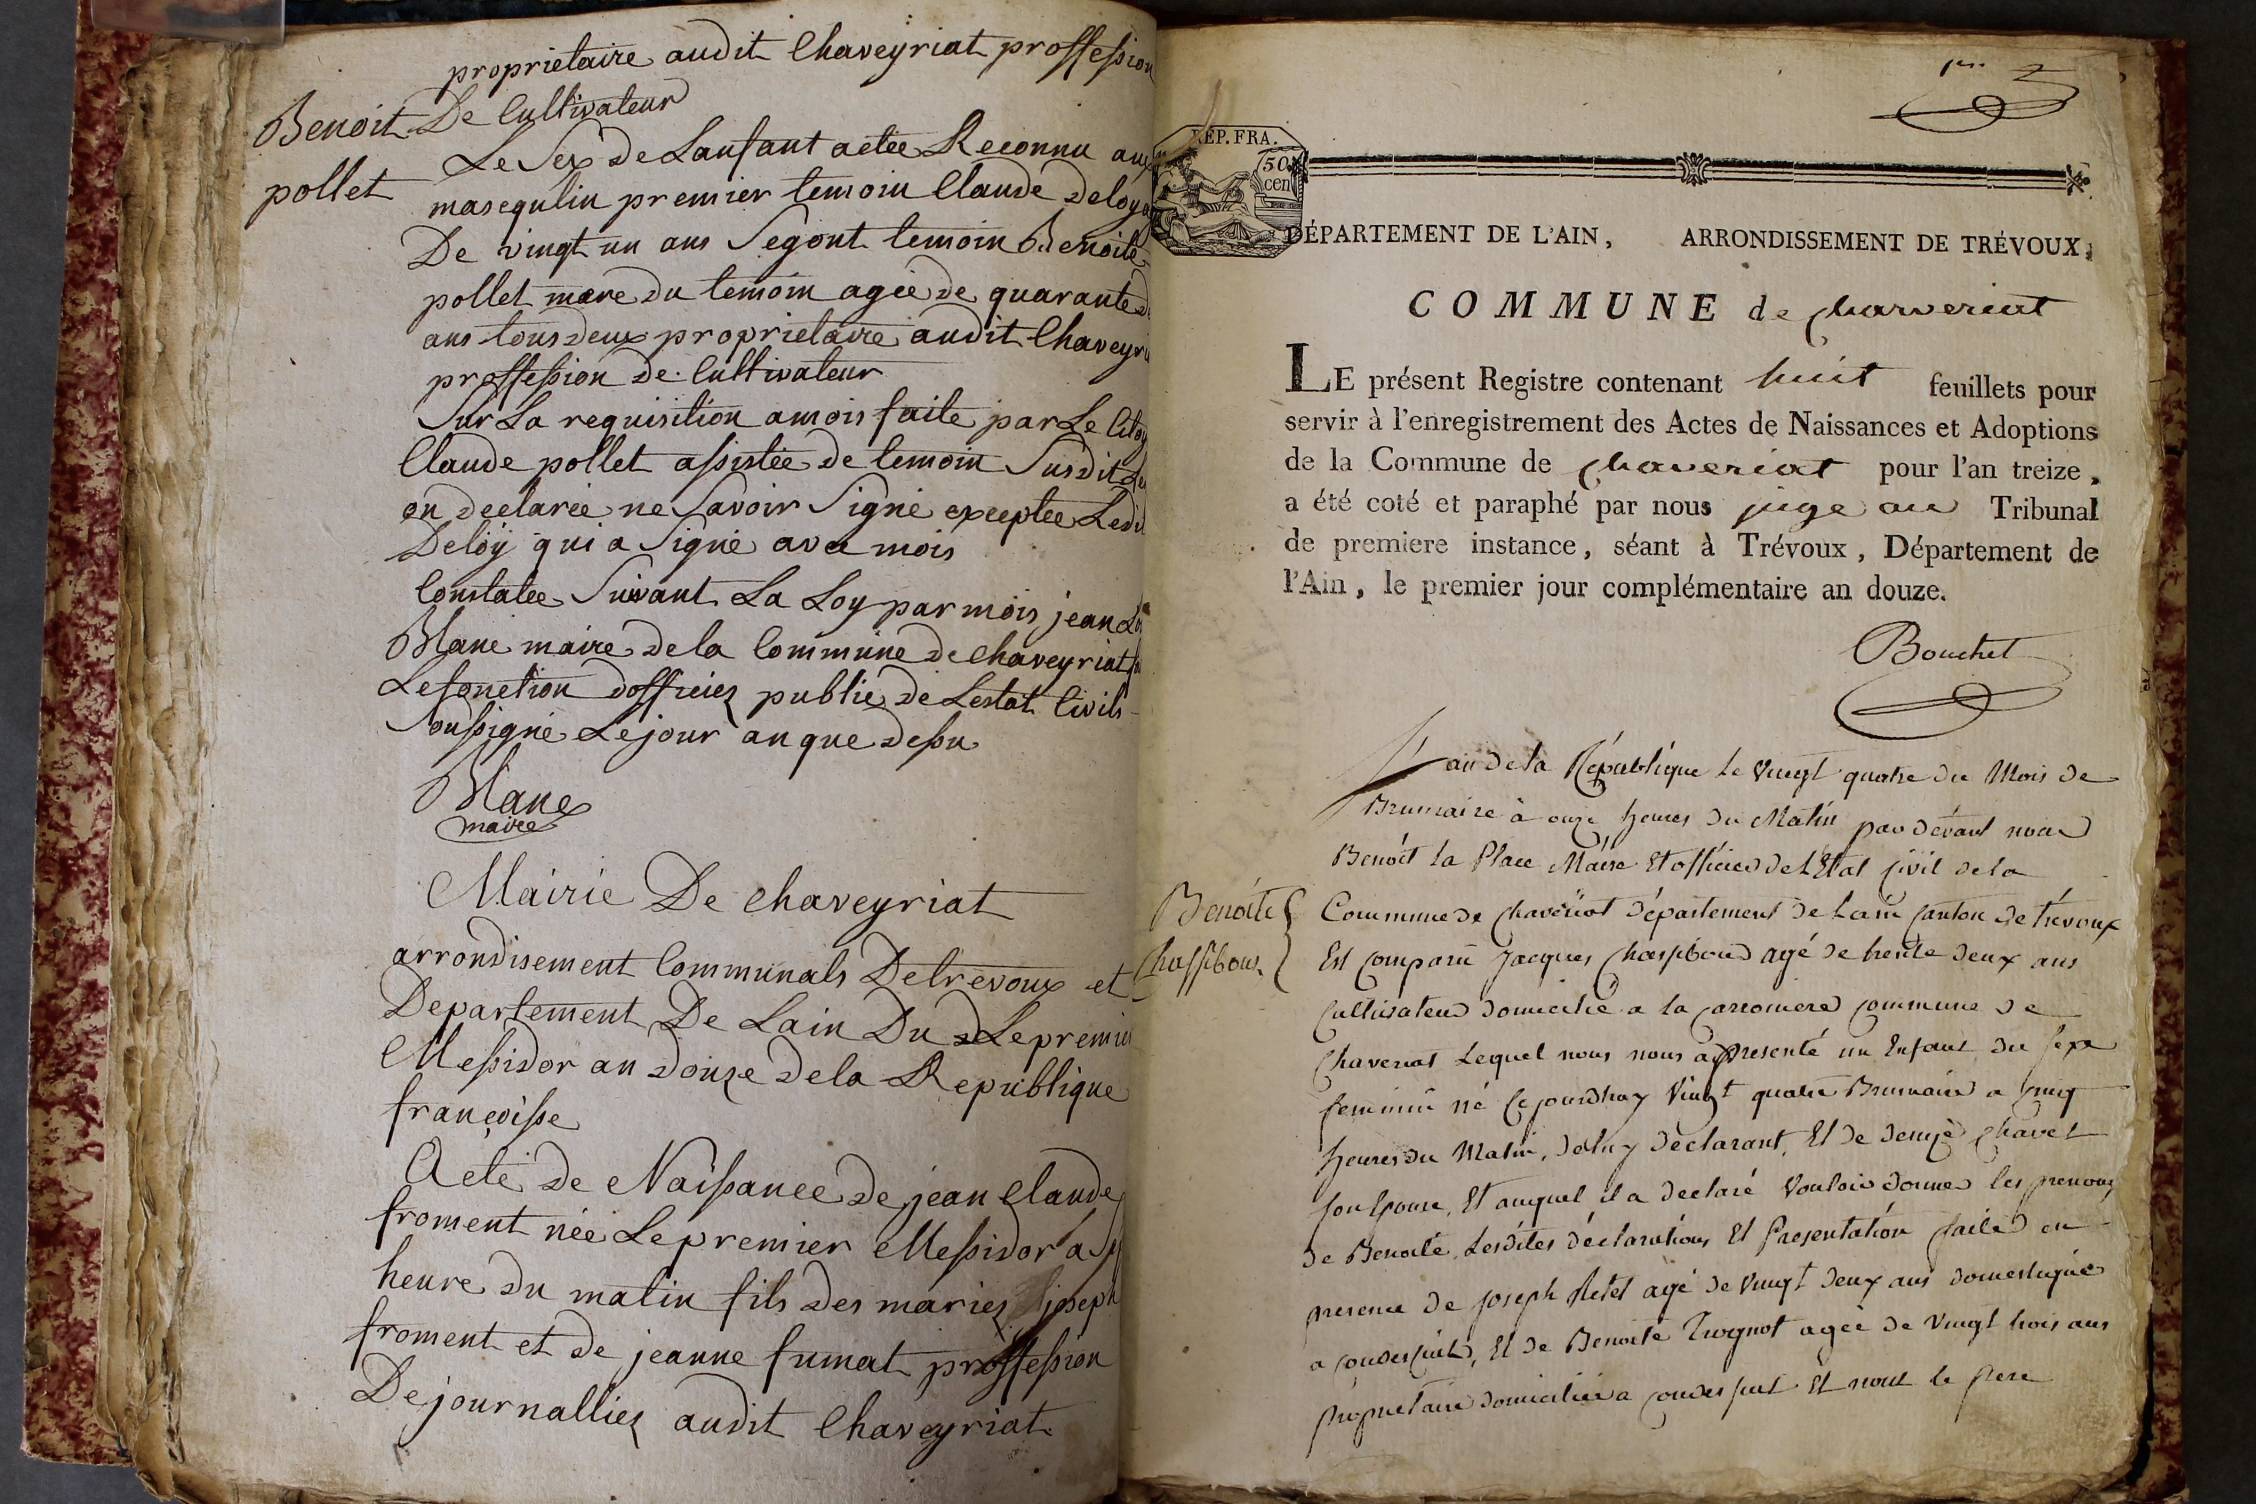 propriétaire audit Chaveyriat proffession
De Cultivateur
Benoit
pollet
Le Sex De Lanfant actée Reconnu
masequlin premier temoin Claude Deloy
De vingt un ans Segont temoin Benoite
pollet mare Du temoin agée de quarante
ans tous Deux propriétaire audit Chaveyri
proffession De Cultivateur
Sur La requisition a mois faite par Le Citoy
Claude pollet assistée De temoin Susdit
on Declarée ne Savoir Signé exceptée Ledit
Deloÿ qui a Signé avec mois
Constatée Suivant La Loy par mois jean
Blanc maire De la Commune De Chaveyriat
Lefonction Dofficiez public De Lestat Civils
Soussigné Le jour an que Dessu
Blanc
maire
Mairie De Chaveyriat
arrondisement Communals De trevoux et
Departement De Lain Du Le premier
Messidor an Douze De la Republique
françoisse
Acte De Naissance De jean Claude
froment née Le premier Messidor a
heure Du matin fils Des mariez joseph
froment et De jeanne fumat proffession
De journalliez audit Chaveyriat
REP. FRA.
50
cen
DÉPARTEMENT DE L'AIN, ARRONDISSEMENT DE TRÉVOUX,
COMMUNE de Charveriat
LE présent Registre contenant huit feuillets pour
servir à l'enregistrement des Actes de Naissances et Adoptions
de la Commune de Chaveriat pour l'an treize,
a été coté et paraphé par nous juge au Tribunal
de premiere instance, séant à Trévoux, Département de
l'Ain, le premier jour complémentaire an douze.
Bouchet
L'an de la République le vingt quatre du Mois de
Brumaire à onze heures du Matin par devant nous
Benoit la Place Maire Et officier de L'Etat Civil de la
Benoite
Chassibour
Commune de Chaveriat Département de Lain Canton de trévoux
Est Comparu Jacques Chassibour agé de trente deux ans
Cultivateur domicilié a la Carroniere Commune de
Chaveriat Lequel nous nous a présenté un Enfant du sexe
feminin né Cejourdhuy Vingt quatre Brumaire a Cinq
heures du Matin, de luy déclarant, Et de denize Chavet
son Epouse, Et auquel il a déclaré Vouloir donner les prenoms
de Benoite, Lesdites déclarations Et Présentation faite en
presence de Joseph Retet agé de vingt deux ans domestique
a Condessiat, Et de Benoite agée de Vingt trois ans
propriétaire domiciliée a Condessiat Et nont le pere